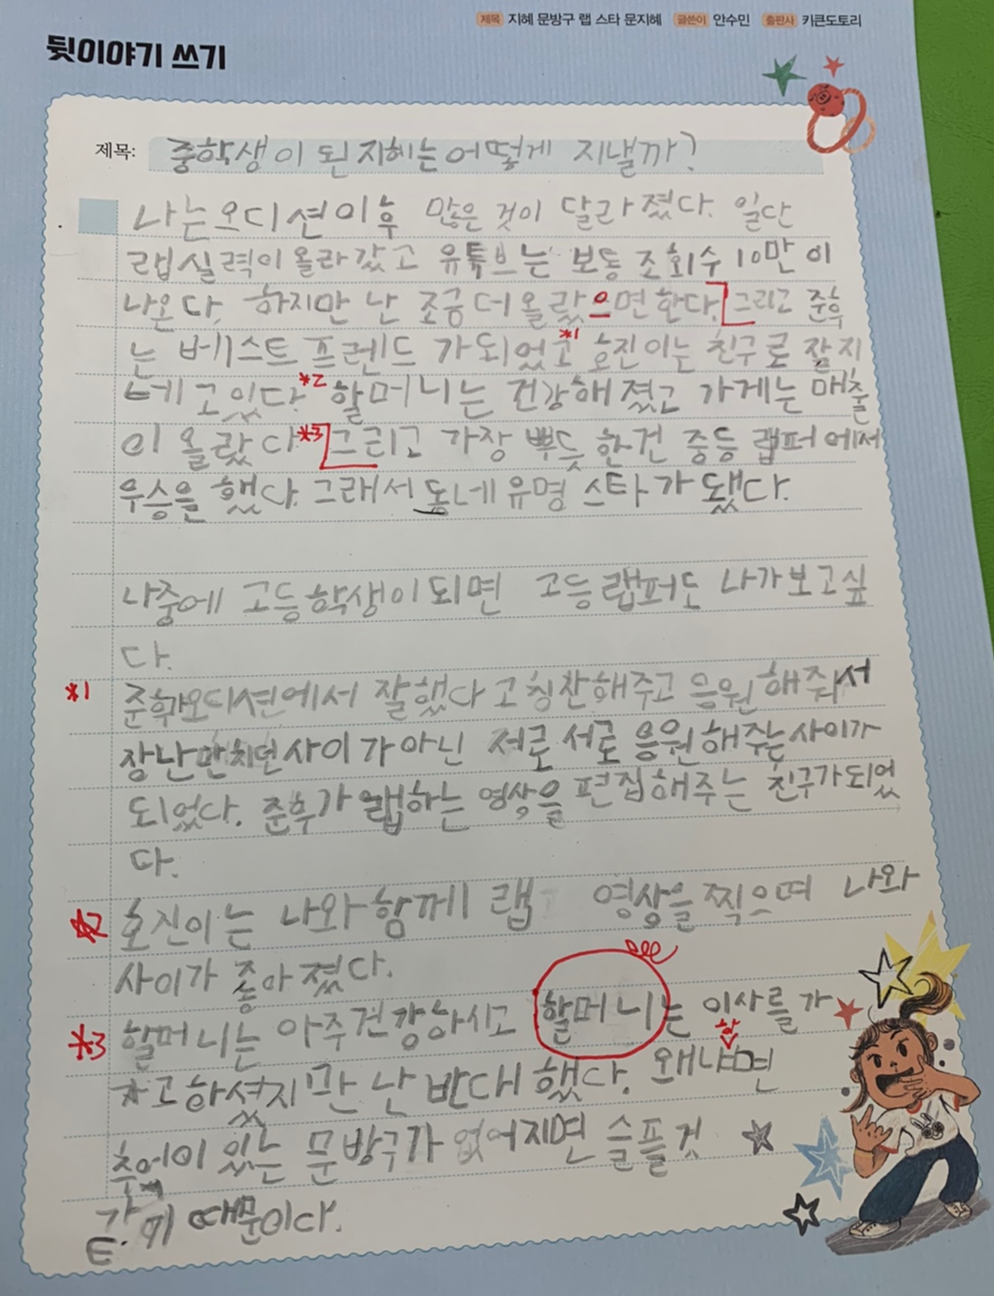 제목 지혜 문방구 랩 스타 문지혜 글쓴이 안수민 출판사 키큰도토리
뒷이야기 쓰기
제목: 중학생이 된 지혜는 어떻게 지낼까?
나는 오디션이후 많은 것이 달라졌다. 일단
랩실력이 올라갔고 유튜브는 보통 조회수 10만이
나온다. 하지만 난 조금 더 올랐으면 한다. 그리고 준후
는 베스트 프렌드가 되었고 *1 호진이는 친구로 잘 지
내고 있다. *2 할머니는 건강해졌고 가게는 매출
이 올랐다 *3 그리고 가장 뿌듯한건 중등 랩퍼에서
우승을 했다. 그래서 동네 유명 스타가 됐다.
나중에 고등학생이 되면 고등랩퍼도 나가보고싶
다.
*1 준후가오디션에서 잘했다고 칭찬해주고 응원해줘서
장난만치던사이가아닌 서로 서로 응원해주는사이가
되었다. 준후가 랩하는 영상을 편집해주는 친구가되었
다.
*2 호진이는 나와함께 랩 영상을 찍으며 나와
사이가 좋아졌다.
*3 할머니는 아주건강하시고 할머니는 이사를 가
자고하셨지만 난 반대했다. 왜냐하면
추억이 있는 문방구가 없어지면 슬플것
같기 때문이다.